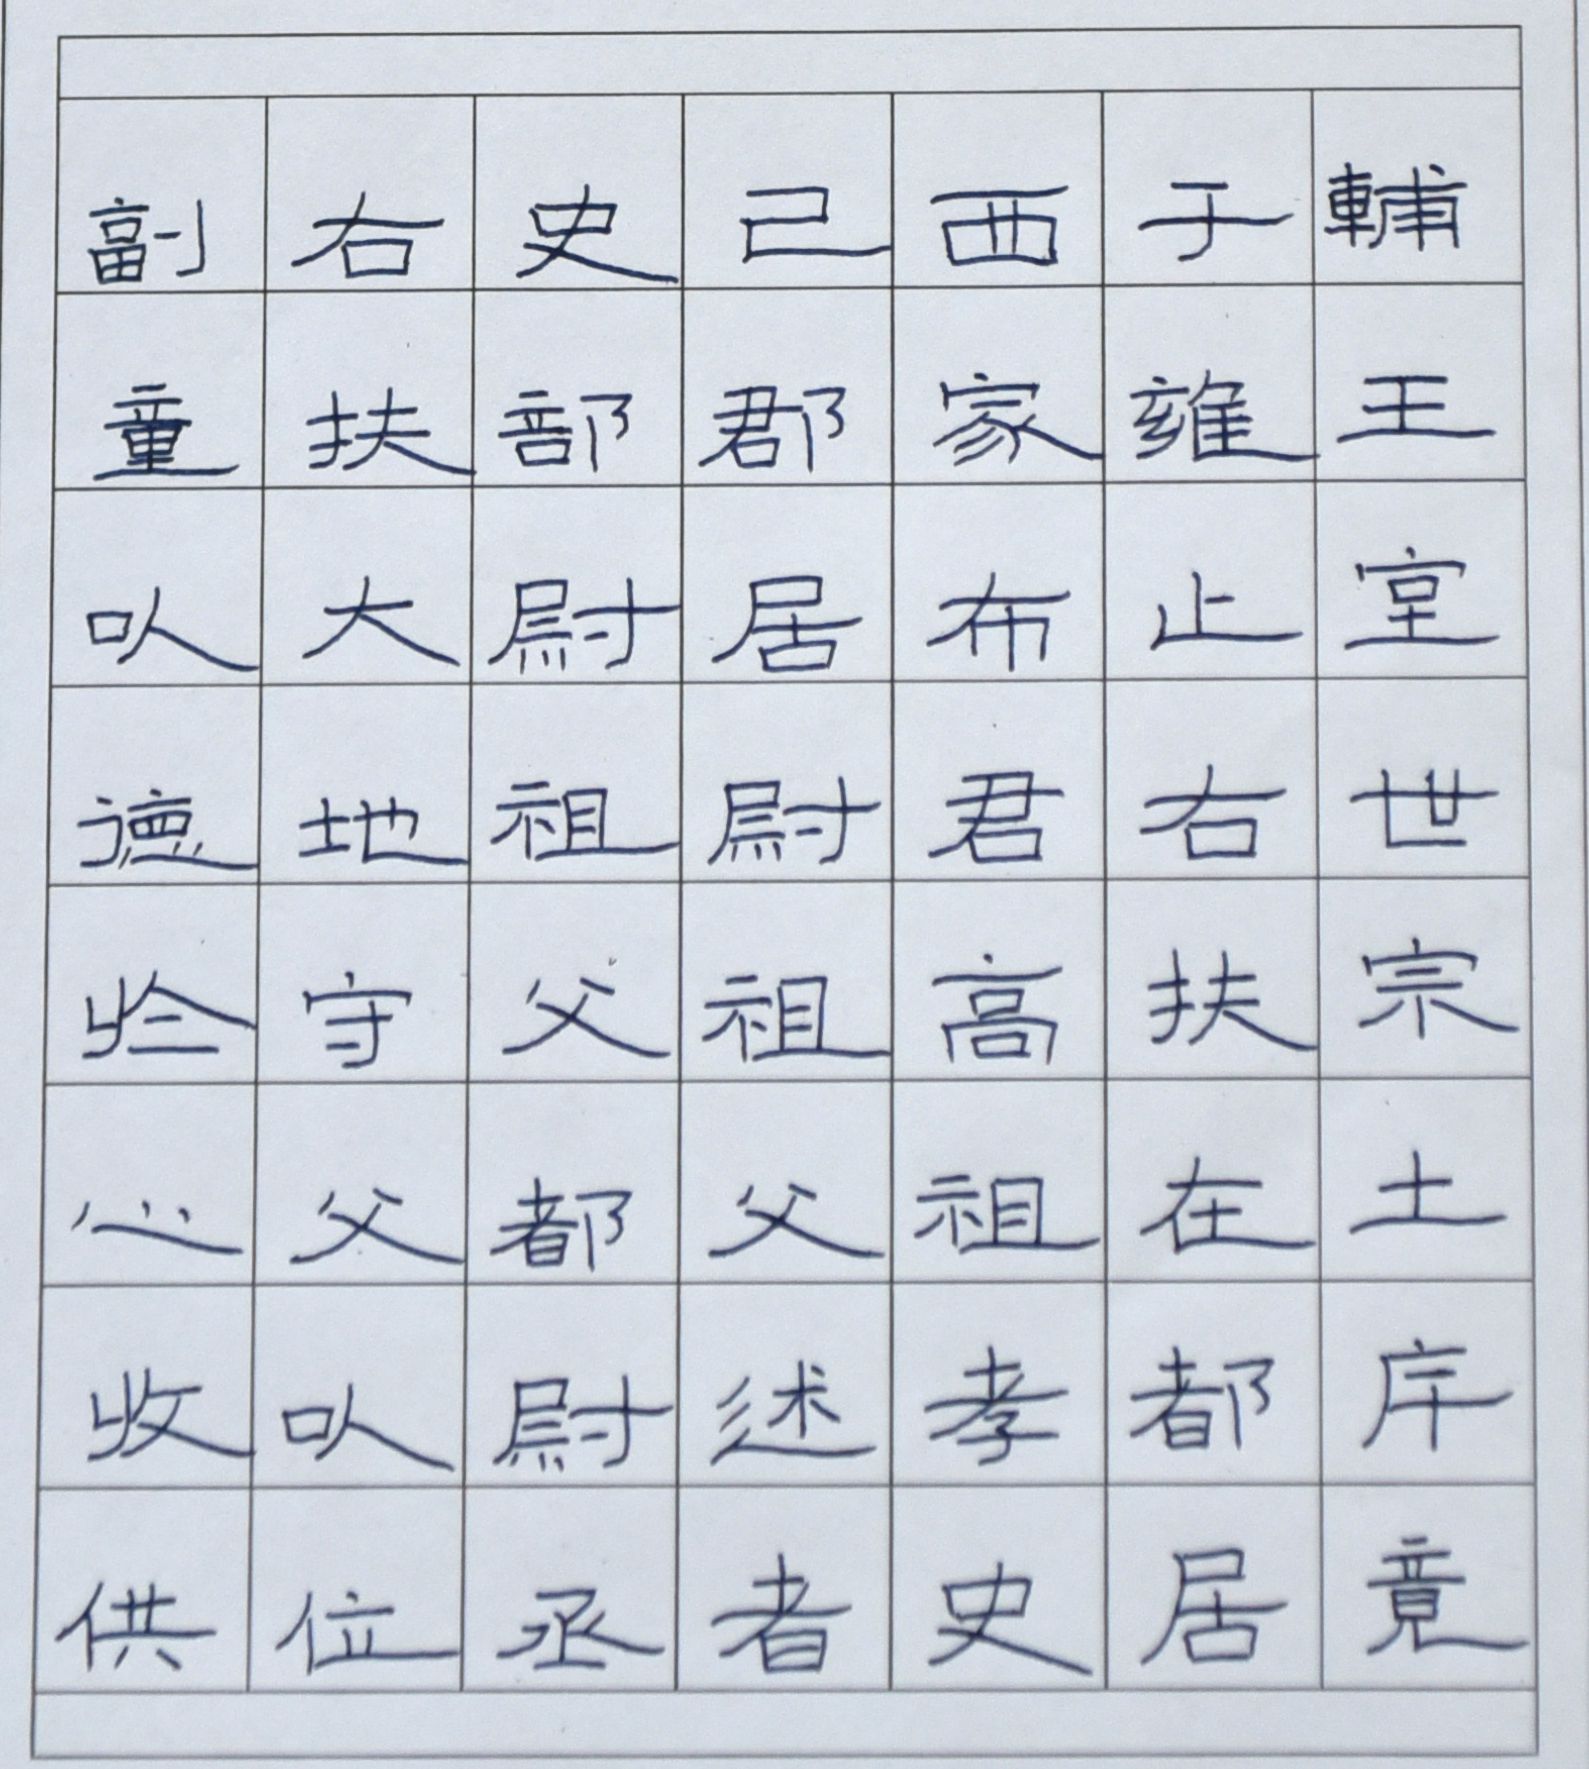 輔王室世宗土斥竟
于雍止右扶在都居
西家布君高祖孝史
己郡居尉祖父述者
史部尉祖父都尉丞
右扶大地守父以位
副童以德於心收供